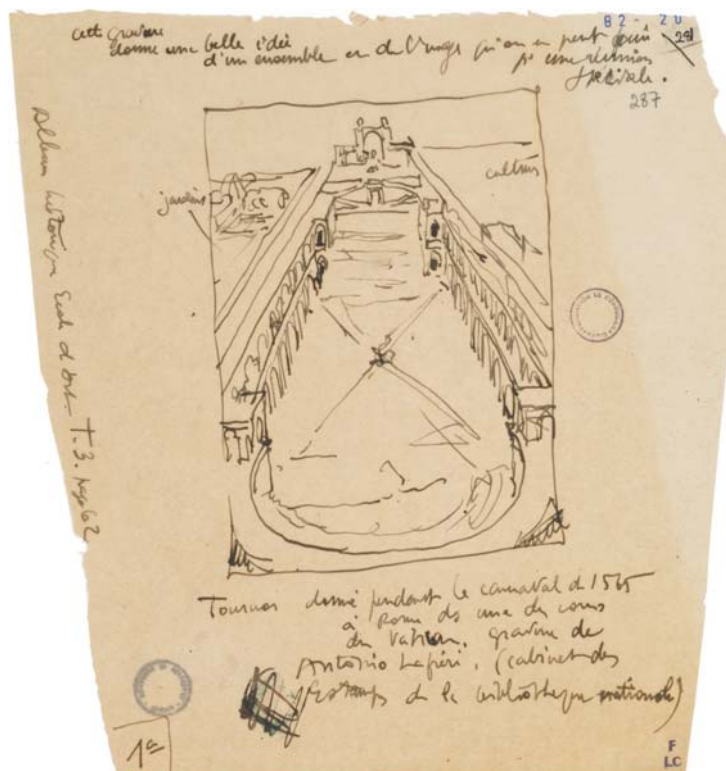 cette gravure
donne une belle idée
d'un ensemble et de l'usage qu'on en peut
pr une réunion
B2-20
281
287
jardins
Album historique T. 3. page 62
Tournoi donné pendant le carnaval de 1565
à Rome ds une des cours
du Vatican, gravure de
Antonio Laféri, (cabinet des
Estampes de la bibliothèque nationale)
1a
F
LC